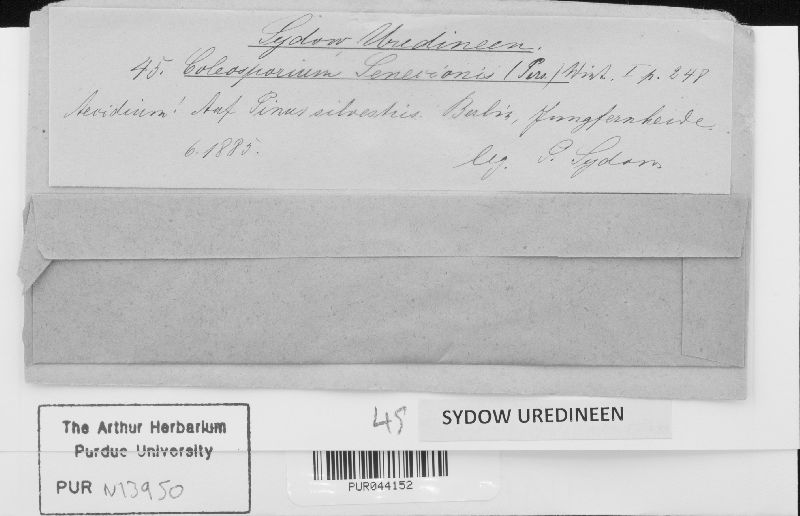 Sydow, Uredineen.
45. Coleosporium Senecionis (Pers) Wint. I p. 248
Aecidium! Auf Pinus silvestris. Berlin, Jungfernheide.
6.1885.
leg. P. Sydow
45 SYDOW UREDINEEN
The Arthur Herbarium
Purdue University
PUR N13950
PUR044152